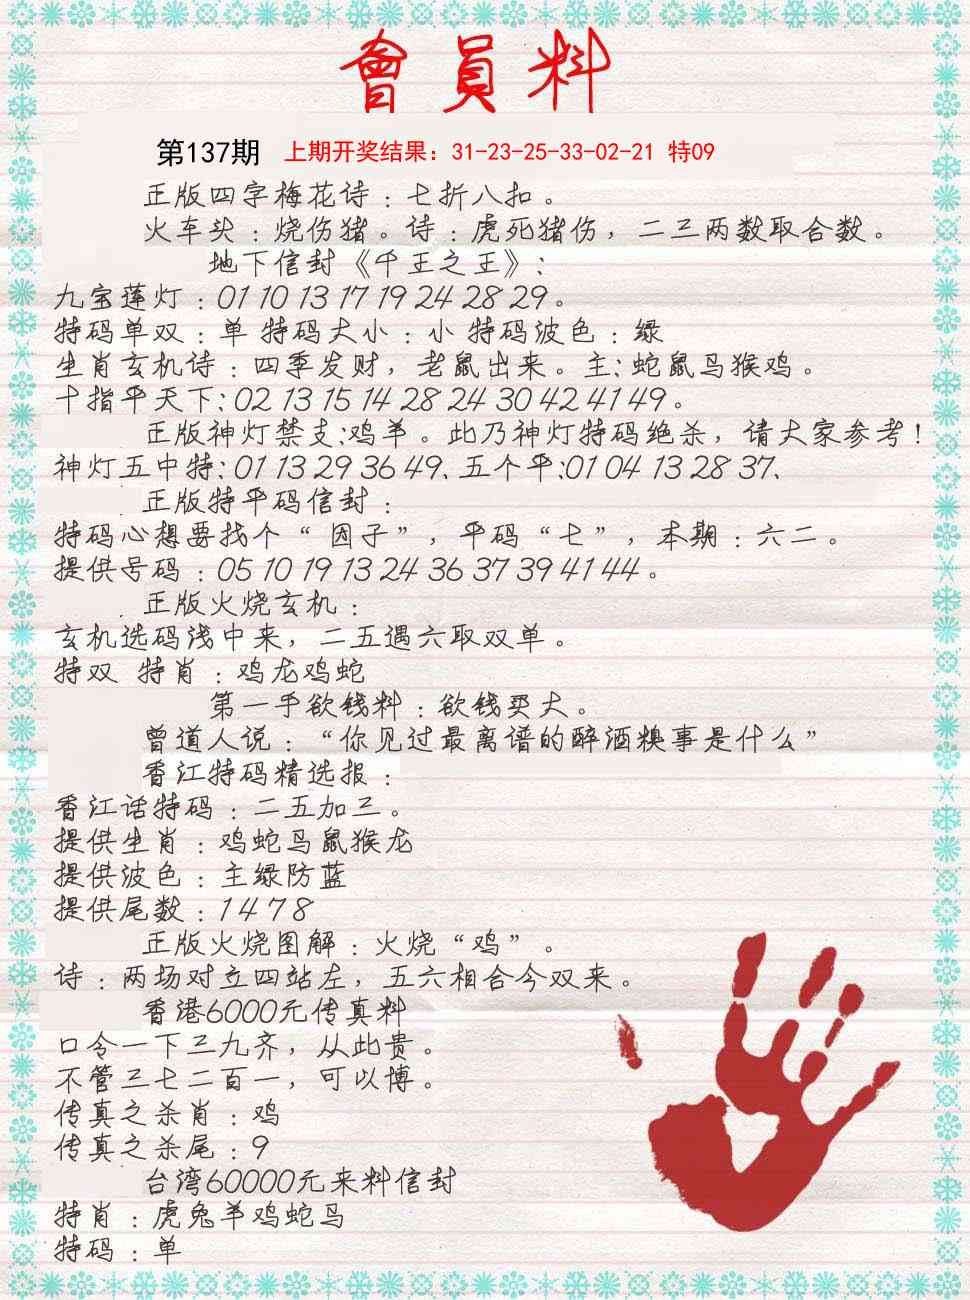 會員料
第137期 上期开奖结果：31-23-25-33-02-21 特09
正版四字梅花诗：七折八扣。
火车头：烧伤猪。诗：虎死猪伤，二三两数取合数。
地下信封《千王之王》：
九宝莲灯：01 10 13 17 19 24 28 29。
特码单双：单 特码大小：小 特码波色：绿
生肖玄机诗：四季发财，老鼠出来。主：蛇鼠马猴鸡。
十指平天下：02 13 15 14 28 24 30 42 41 49。
正版神灯禁支:鸡羊。此乃神灯特码绝杀，请大家参考！
神灯五中特：01 13 29 36 49、五个平:01 04 13 28 37、
正版特平码信封：
特码心想要找个“因子”，平码“七”，本期：六二。
提供号码：05 10 19 13 24 36 37 39 41 44。
正版火烧玄机：
玄机选码浅中来，二五遇六取双单。
特双 特肖：鸡龙鸡蛇
第一手欲钱料：欲钱买大。
曾道人说：“你见过最离谱的醉酒糗事是什么”
香江特码精选报：
香江话特码：二五加三。
提供生肖：鸡蛇马鼠猴龙
提供波色：主绿防蓝
提供尾数：1 4 7 8
正版火烧图解：火烧“鸡”。
诗：两场对立四站左，五六相合今双来。
香港6000元传真料
口令一下三九齐，从此贵。
不管三七二百一，可以博。
传真之杀肖：鸡
传真之杀尾：9
台湾60000元来料信封
特肖：虎兔羊鸡蛇马
特码：单